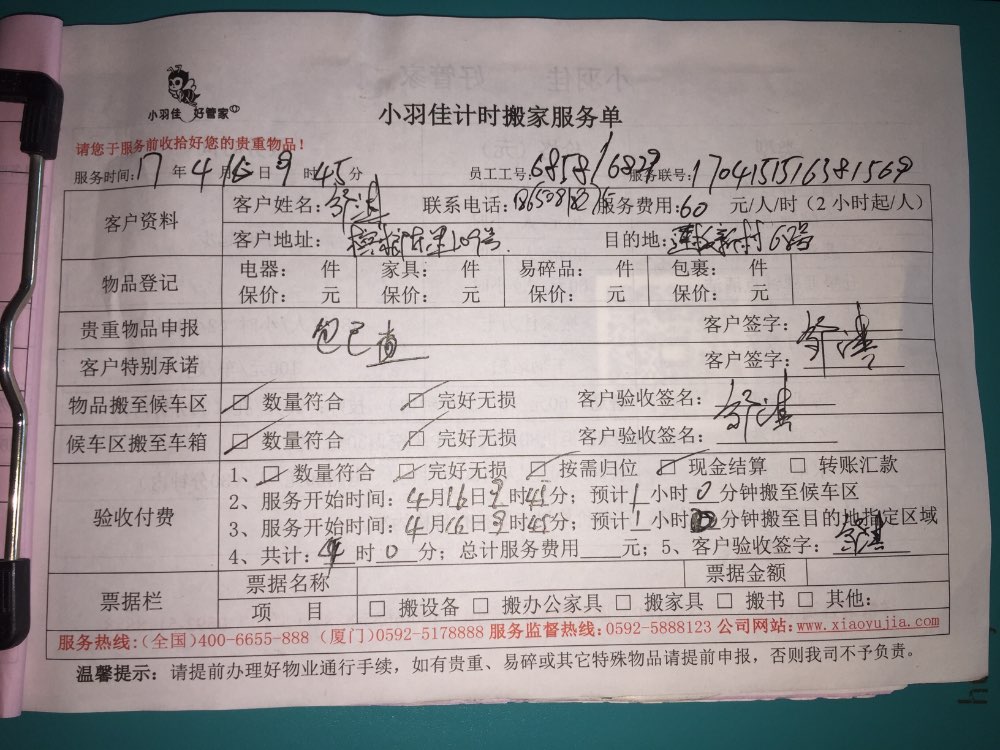 小羽佳 好管家
小羽佳计时搬家服务单
请您于服务前收拾好您的贵重物品！
服务时间: 17 年 4 月 16 日 9 时 45 分 员工工号: 6858/6829 服务联号: 170415151638156
客户资料 客户姓名: 联系电话: 服务费用: 60 元/人/时（2 小时起/人）
客户地址: 109号 目的地: 新村 62号
物品登记 电器： 件 家具： 件 易碎品： 件 包裹： 件
保价： 元 保价： 元 保价： 元 保价： 元
贵重物品申报 包已查 客户签字：
客户特别承诺 客户签字：
物品搬至候车区 ☑ 数量符合 ☑ 完好无损 客户验收签名：
候车区搬至车箱 ☑ 数量符合 ☑ 完好无损 客户验收签名：
验收付费 1、☑ 数量符合 ☑ 完好无损 ☑ 按需归位 ☑ 现金结算 □ 转账汇款
2、服务开始时间： 4 月 16 日 9 时 45 分；预计 1 小时 0 分钟搬至候车区
3、服务开始时间： 4 月 16 日 9 时 45 分；预计 1 小时 分钟搬至目的地指定区域
4、共计： 4 时 0 分；总计服务费用 元；5、客户验收签字：
票据栏 票据名称 票据金额
项 目 □ 搬设备 □ 搬办公家具 □ 搬家具 □ 搬书 □ 其他：
服务热线:(全国)400-6655-888 (厦门)0592-5178888 服务监督热线:0592-5888123 公司网站:www.xiaoyujia.com
温馨提示：请提前办理好物业通行手续，如有贵重、易碎或其它特殊物品请提前申报，否则我司不予负责。